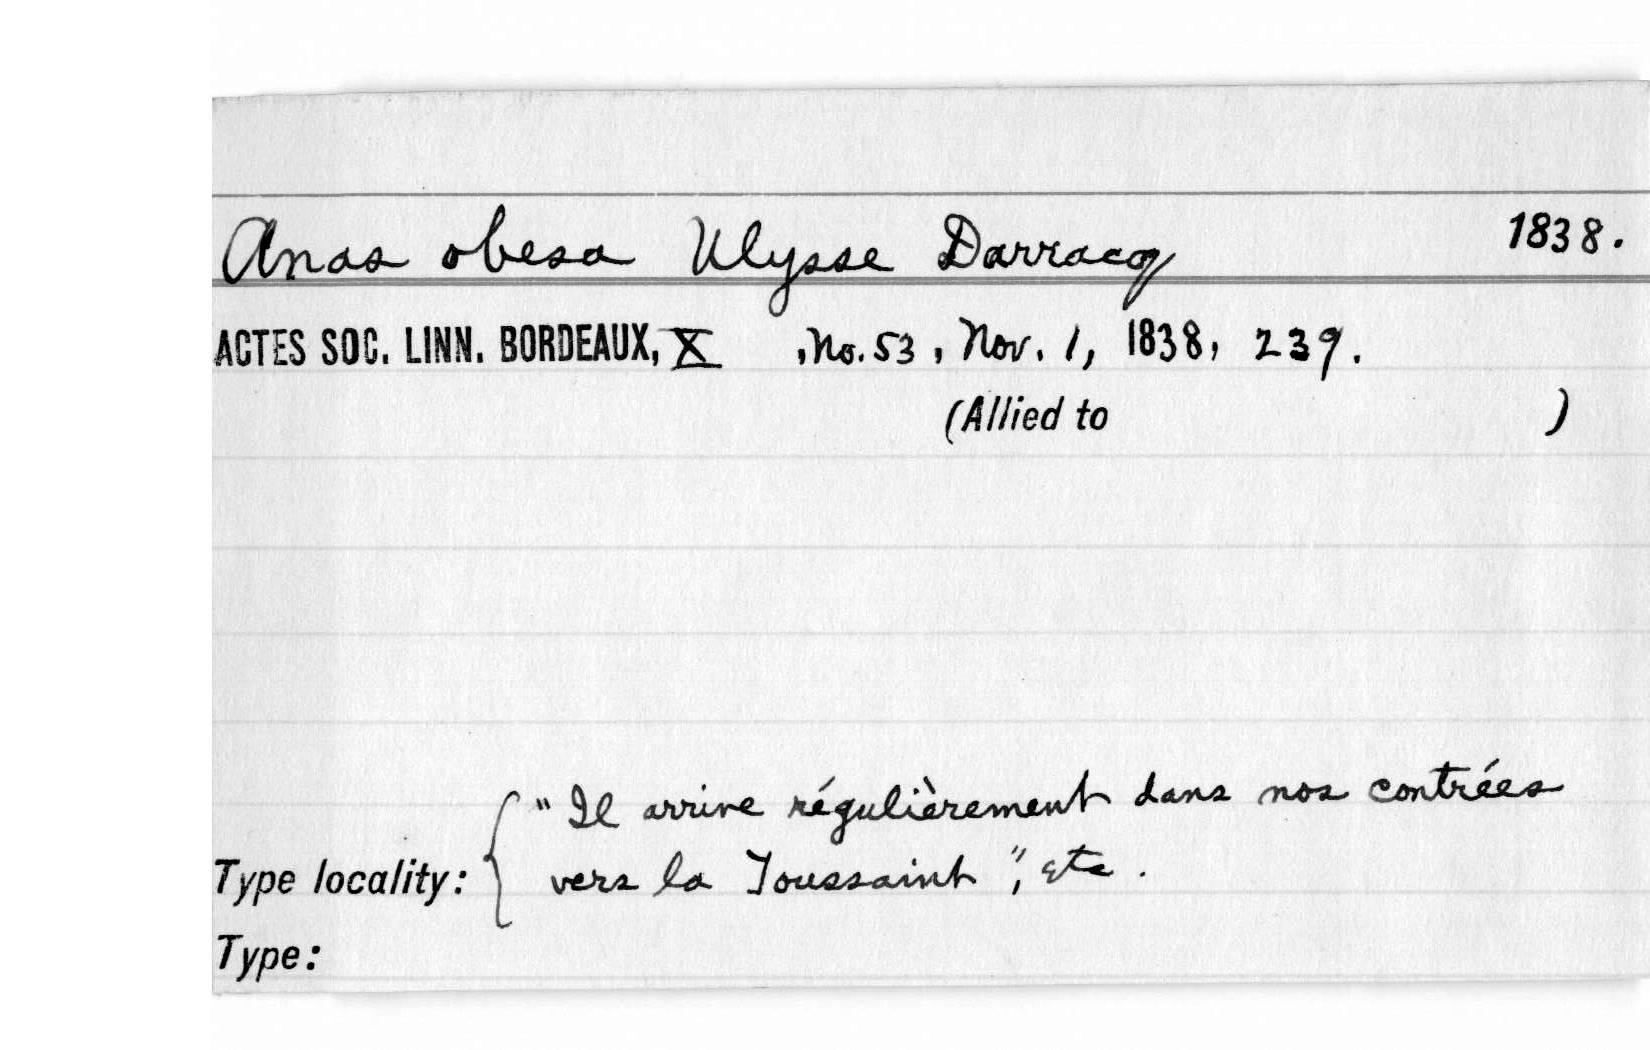 Anas obesa Ulysse Darracq 1838.
ACTES SOC. LINN. BORDEAUX, X , No. 53, Nov. 1, 1838, 239.
(Allied to )
"Il arrive régulièrement dans nos contrées
Type locality: { vers la Toussaint", etc.
Type: